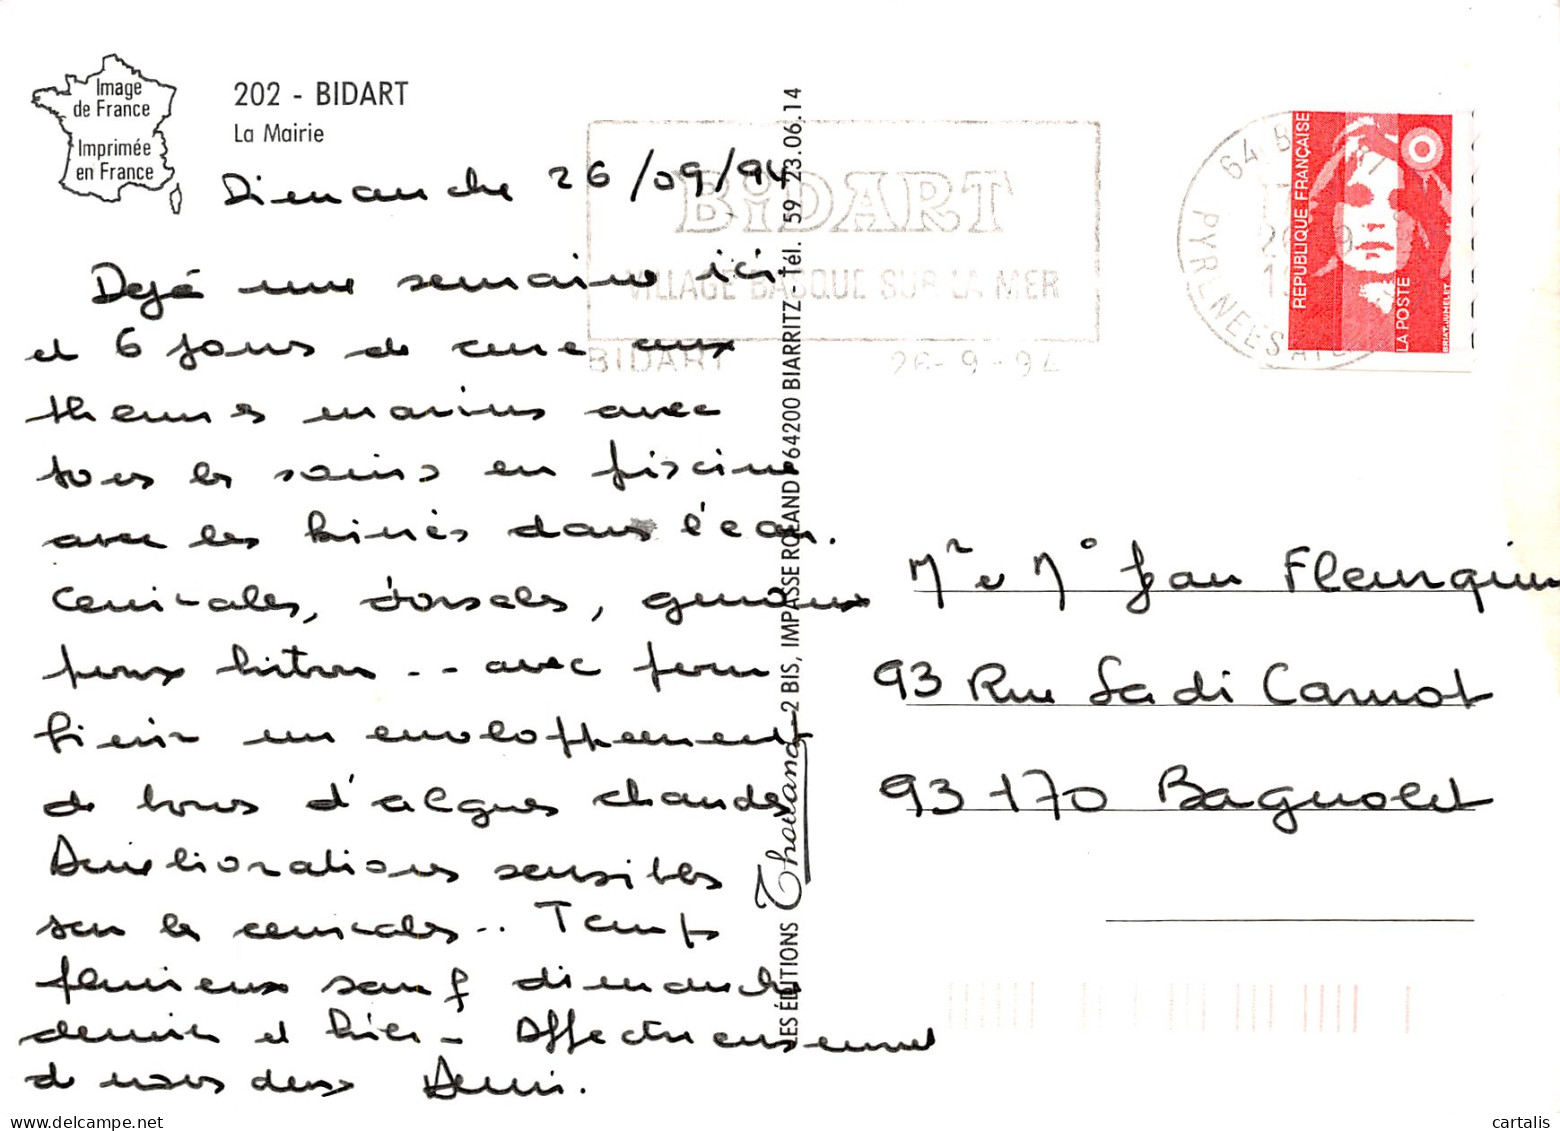 Image
de France
Imprimée
en France
202 - BIDART
La Mairie
Dimanche 26/09/94
Dejà une semaine ici
et 6 jours de cure aux
thermes marins avec
tous les soins en piscine
avec les kinés dans l'eau.
Cervicales, dorsales, genoux
avec pour
finir un enveloppement
de boues d'algues chaudes
Améliorations sensibles
sur les cervicales.. Temps
pluvieux sauf dimanche
dernier et hier - Affectueusement
de nous deux
LES ÉDITIONS Thouand - 2 BIS, IMPASSE ROLAND - 64200 BIARRITZ - Tél. 59 23.06.14
BIDART
VILLAGE BASQUE SUR LA MER
BIDART 26-9-94
64 B
PYRENEES ATL
REPUBLIQUE FRANÇAISE
LA POSTE
BRIAT-JUMELET
Mr e Me Jean Fleurquin
93 Rue Sadi Carnot
93170 Bagnolet
www.delcampe.net
cartalis